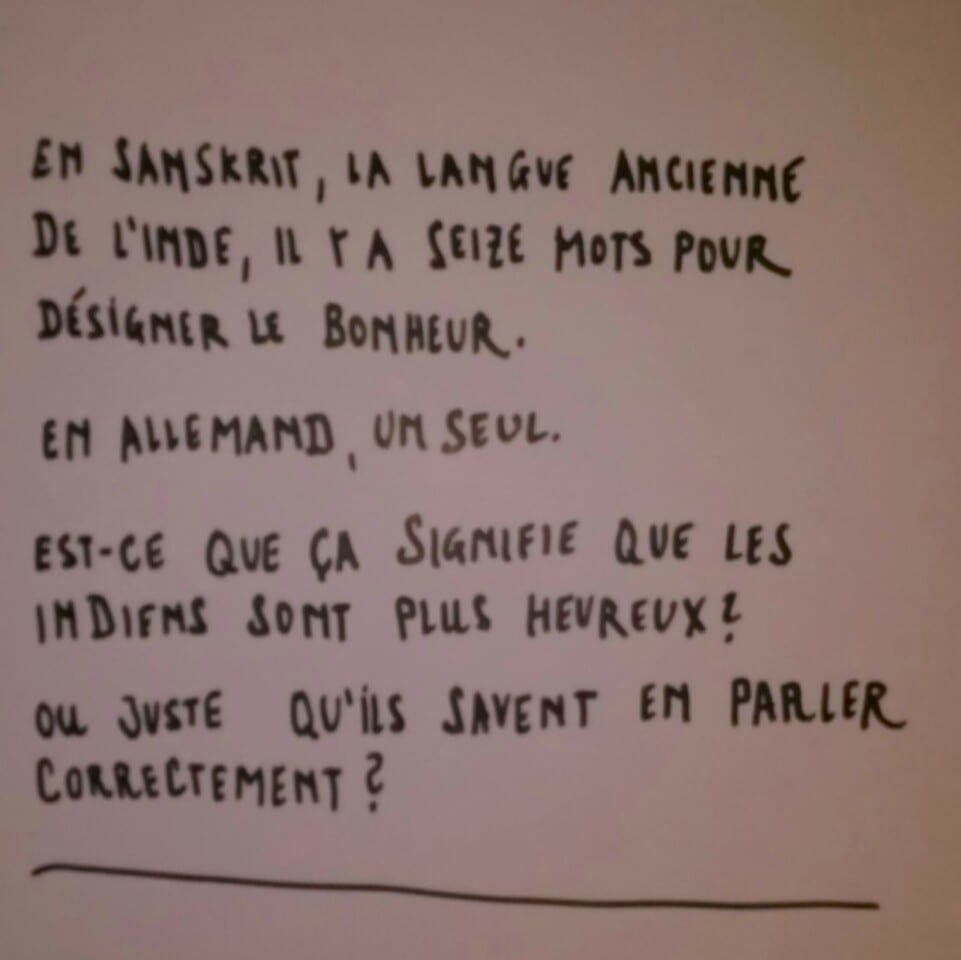 EN SANSKRIT, LA LANGUE ANCIENNE
DE L'INDE, IL Y A SEIZE MOTS POUR
DÉSIGNER LE BONHEUR.
EN ALLEMAND, UN SEUL.
EST-CE QUE ÇA SIGNIFIE QUE LES
INDIENS SONT PLUS HEUREUX?
OU JUSTE QU'ILS SAVENT EN PARLER
CORRECTEMENT?